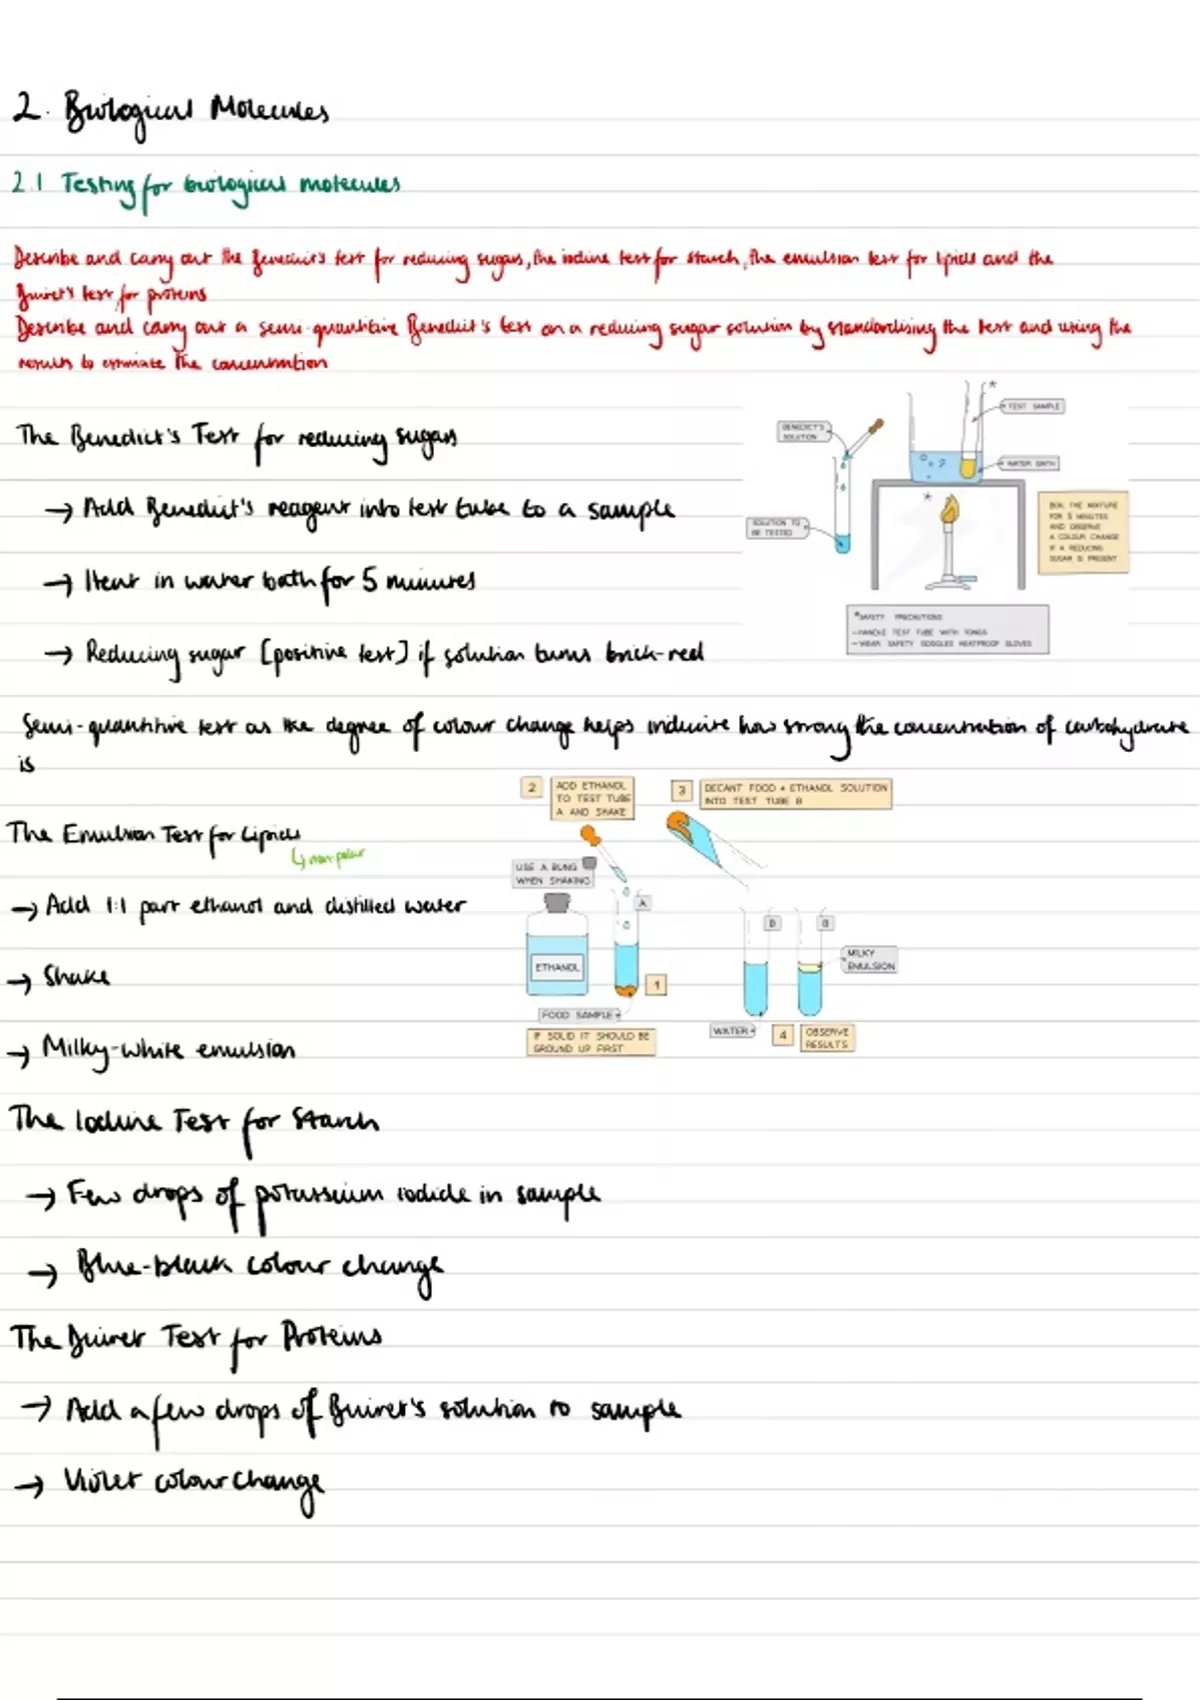 2. Biological Molecules
2.1 Testing for biological molecules
Describe and carry out the Benedict's test for reducing sugars, the iodine test for starch, the emulsion test for lipids and the
Buiret's test for proteins
Describe and carry out a semi-quantitive Benedict's test on a reducing sugar solution by standardising the test and using the
results to estimate the concentration
The Benedict's Test for reducing sugars
→ Add Benedict's reagent into test tube to a sample
→ Heat in water bath for 5 minutes
→ Reducing sugar [positive test] if solution turns brick-red
BENEDICT'S
SOLUTION
SOLUTION TO
BE TESTED
*
TEST SAMPLE
WATER BATH
*
BOIL THE MIXTURE
FOR 5 MINUTES
AND OBSERVE
A COLOUR CHANGE
IF A REDUCING
SUGAR IS PRESENT
*SAFETY PRECAUTIONS
—HANDLE TEST TUBE WITH TONGS
—WEAR SAFETY GOGGLES HEATPROOF GLOVES
Semi-quantitive test as the degree of colour change helps indicate how strong the concentration of carbohydrate
is
The Emulsion Test for Lipids
↳ non polar
→ Add 1:1 part ethanol and distilled water
→ Shake
→ Milky-white emulsion
2
ADD ETHANOL
TO TEST TUBE
A AND SHAKE
3
DECANT FOOD + ETHANOL SOLUTION
INTO TEST TUBE B
USE A BUNG
WHEN SHAKING
A
ETHANOL
1
FOOD SAMPLE
IF SOLID IT SHOULD BE
GROUND UP FIRST
B
B
MILKY
EMULSION
WATER
4
OBSERVE
RESULTS
The Iodine Test for Starch
→ Few drops of potassium iodide in sample
→ Blue-black colour change
The Buiret Test for Proteins
→ Add a few drops of Buiret's solution to sample
→ Violet colour change